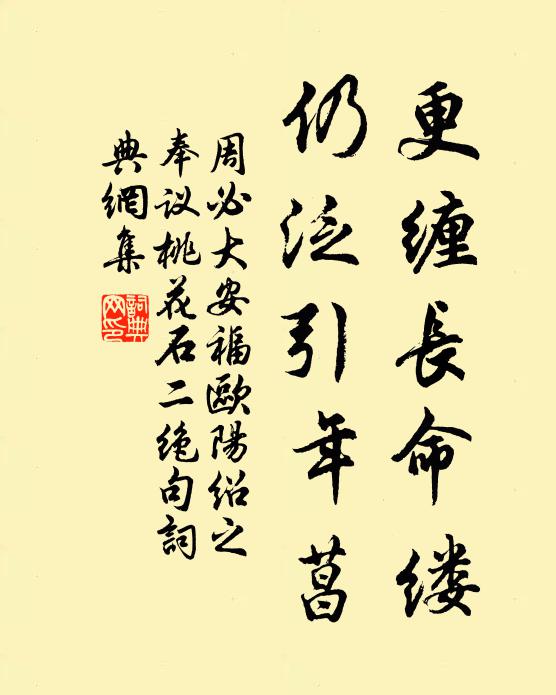 更缠长命缕
仍泛引年菖
周必大安福歐陽绍之
奉议桃花石二绝句詞
典網集
詞典網印